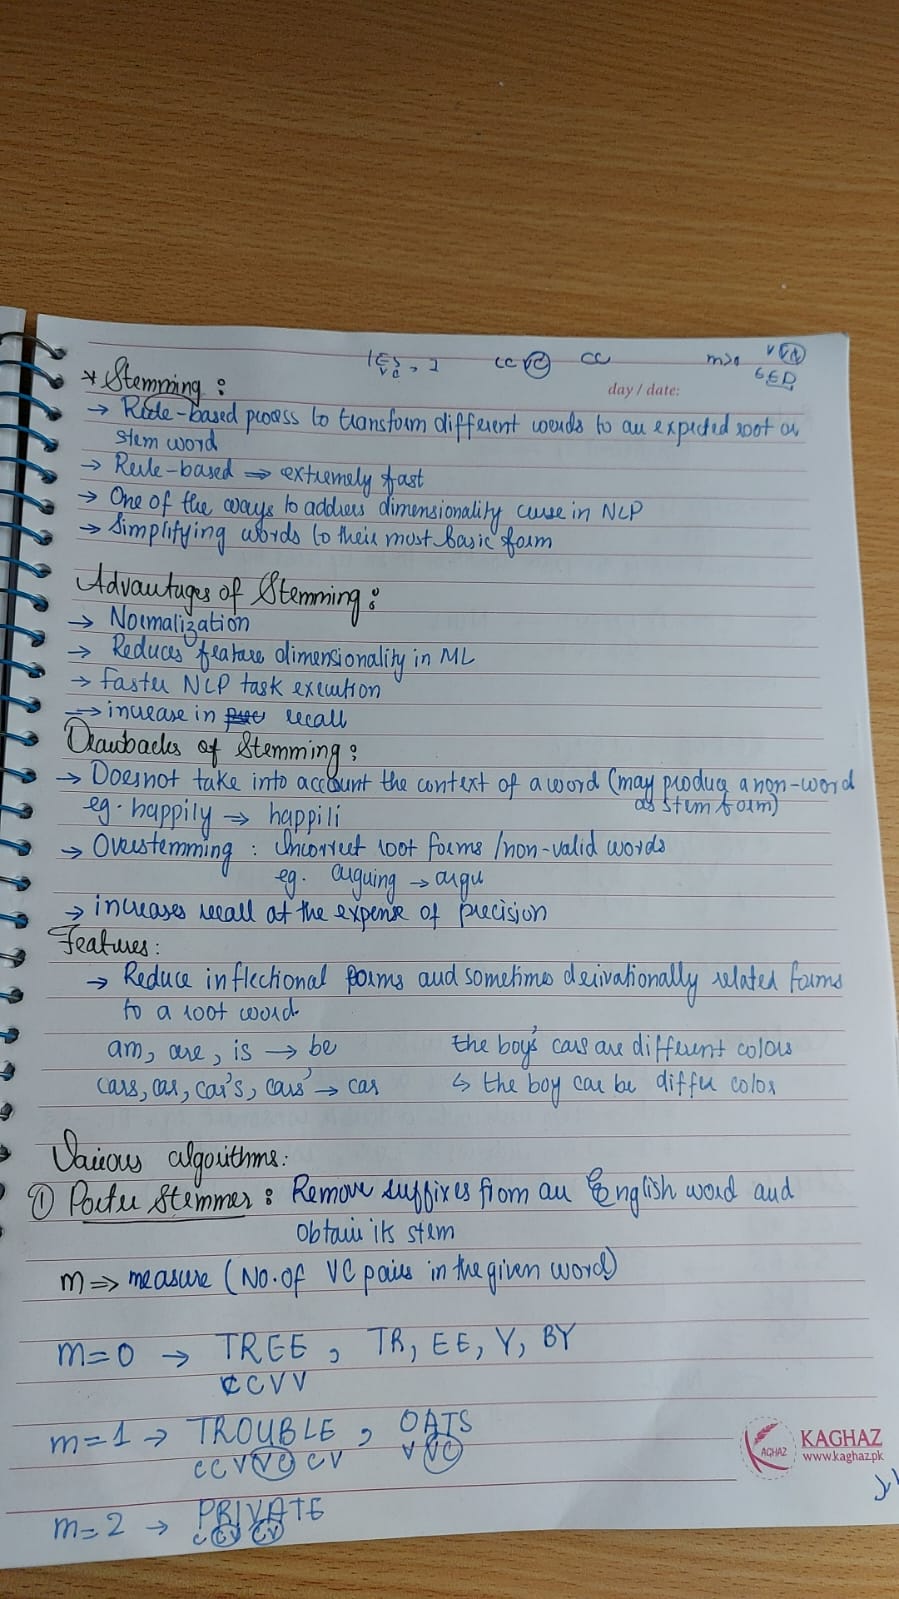 CC VC CC m>0 V VC
day / date:
* Stemming :
→ Rule-based process to transform different words to an expected root or
stem word
→ Rule-based ⇒ extremely fast
→ One of the ways to address dimensionality curse in NLP
→ Simplifying words to their most basic form
Advantages of Stemming :
→ Normalization
→ Reduces feature dimensionality in ML
→ faster NLP task execution
→ increase in recall
Drawbacks of Stemming :
→ Doesnot take into account the context of a word (may produce a non-word
as stem form)
eg. happily → happili
→ Overstemming : Incorrect root forms / non-valid words
eg. arguing → argu
→ increases recall at the expense of precision
Features:
→ Reduce inflectional forms and sometimes derivationally related forms
to a root word
am, are, is → be the boy's cars are different colors
cars, car, car's, cars' → car ↳ the boy car be differ color
Various algorithms:
① Porter Stemmer : Remove suffixes from an English word and
obtain its stem
m ⇒ measure (No. of VC pairs in the given word)
m=0 → TREE , TR, EE, Y, BY
CCVV
m=1 → TROUBLE , OATS
CCVVCCV VVC
m=2 → PRIVATE
C CV CV
KAGHAZ
KAGHAZ
www.kaghaz.pk